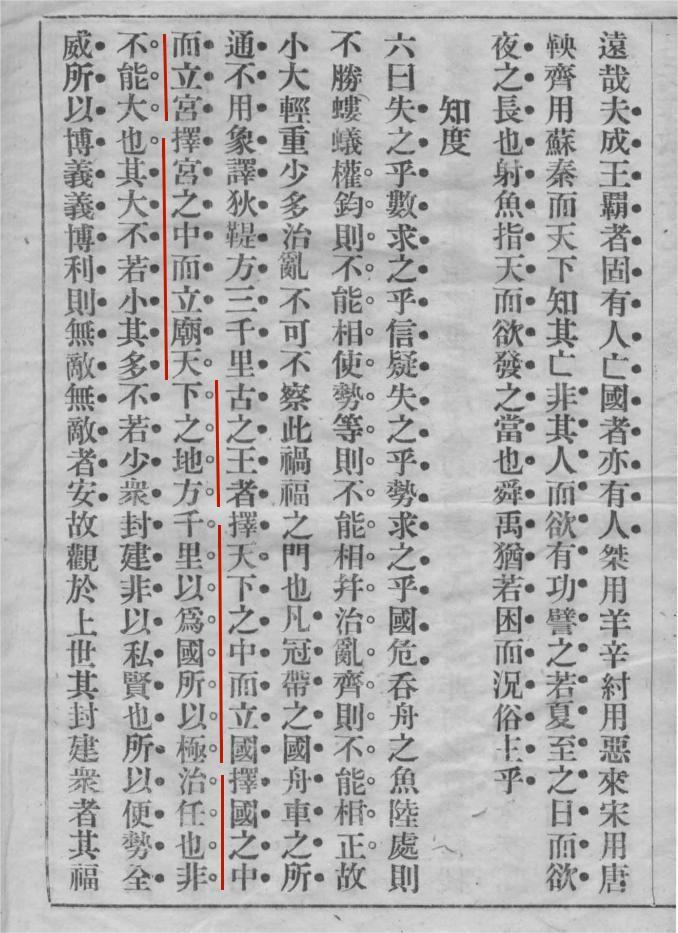 遠哉夫成王霸者固有人亡國者亦有人桀用羊辛紂用惡來宋用唐
鞅齊用蘇秦而天下知其亡非其人而欲有功譬之若夏至之日而欲
夜之長也射魚指天而欲發之當也舜禹猶若困而況俗主乎
知度
六曰失之乎數求之乎信疑失之乎勢求之乎國危吞舟之魚陸處則
不勝螻蟻權鈞則不能相使勢等則不能相并治亂齊則不能相正故
小大輕重少多治亂不可不察此禍福之門也凡冠帶之國舟車之所
通不用象譯狄鞮方三千里古之王者擇天下之中而立國擇國之中
而立宮擇宮之中而立廟天下之地方千里以爲國所以極治任也非
不能大也其大不若小其多不若少衆封建非以私賢也所以便勢全
威所以博義義博利則無敵無敵者安故觀於上世其封建衆者其福